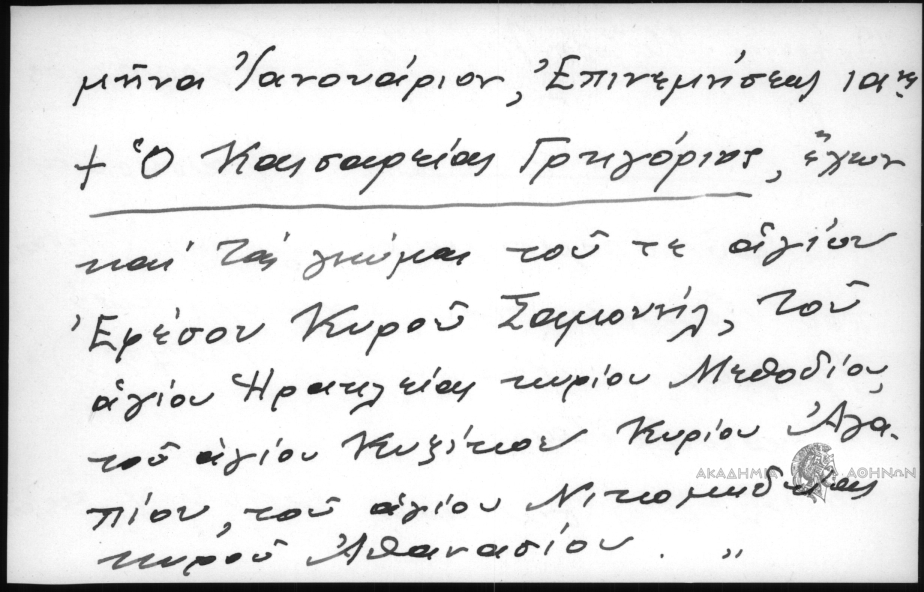 μῆνα Ἰανουάριον, Ἐπινεμήσεως ια ης
+ Ὁ Καισαρείας Γρηγόριος, ἔχων
καί τάς γνώμας τοῦ τε ἁγίου
Ἐφέσου Κυροῦ Σαμουήλ, τοῦ
ἁγίου Ἡρακλείας κυρίου Μεθοδίου,
τοῦ ἁγίου Κυζίκου Κυρίου Ἀγα-
πίου, τοῦ ἁγίου Νικομηδείας
κυροῦ Ἀθανασίου. "
ΑΚΑΔΗΜΙΑ ΑΘΗΝΩΝ